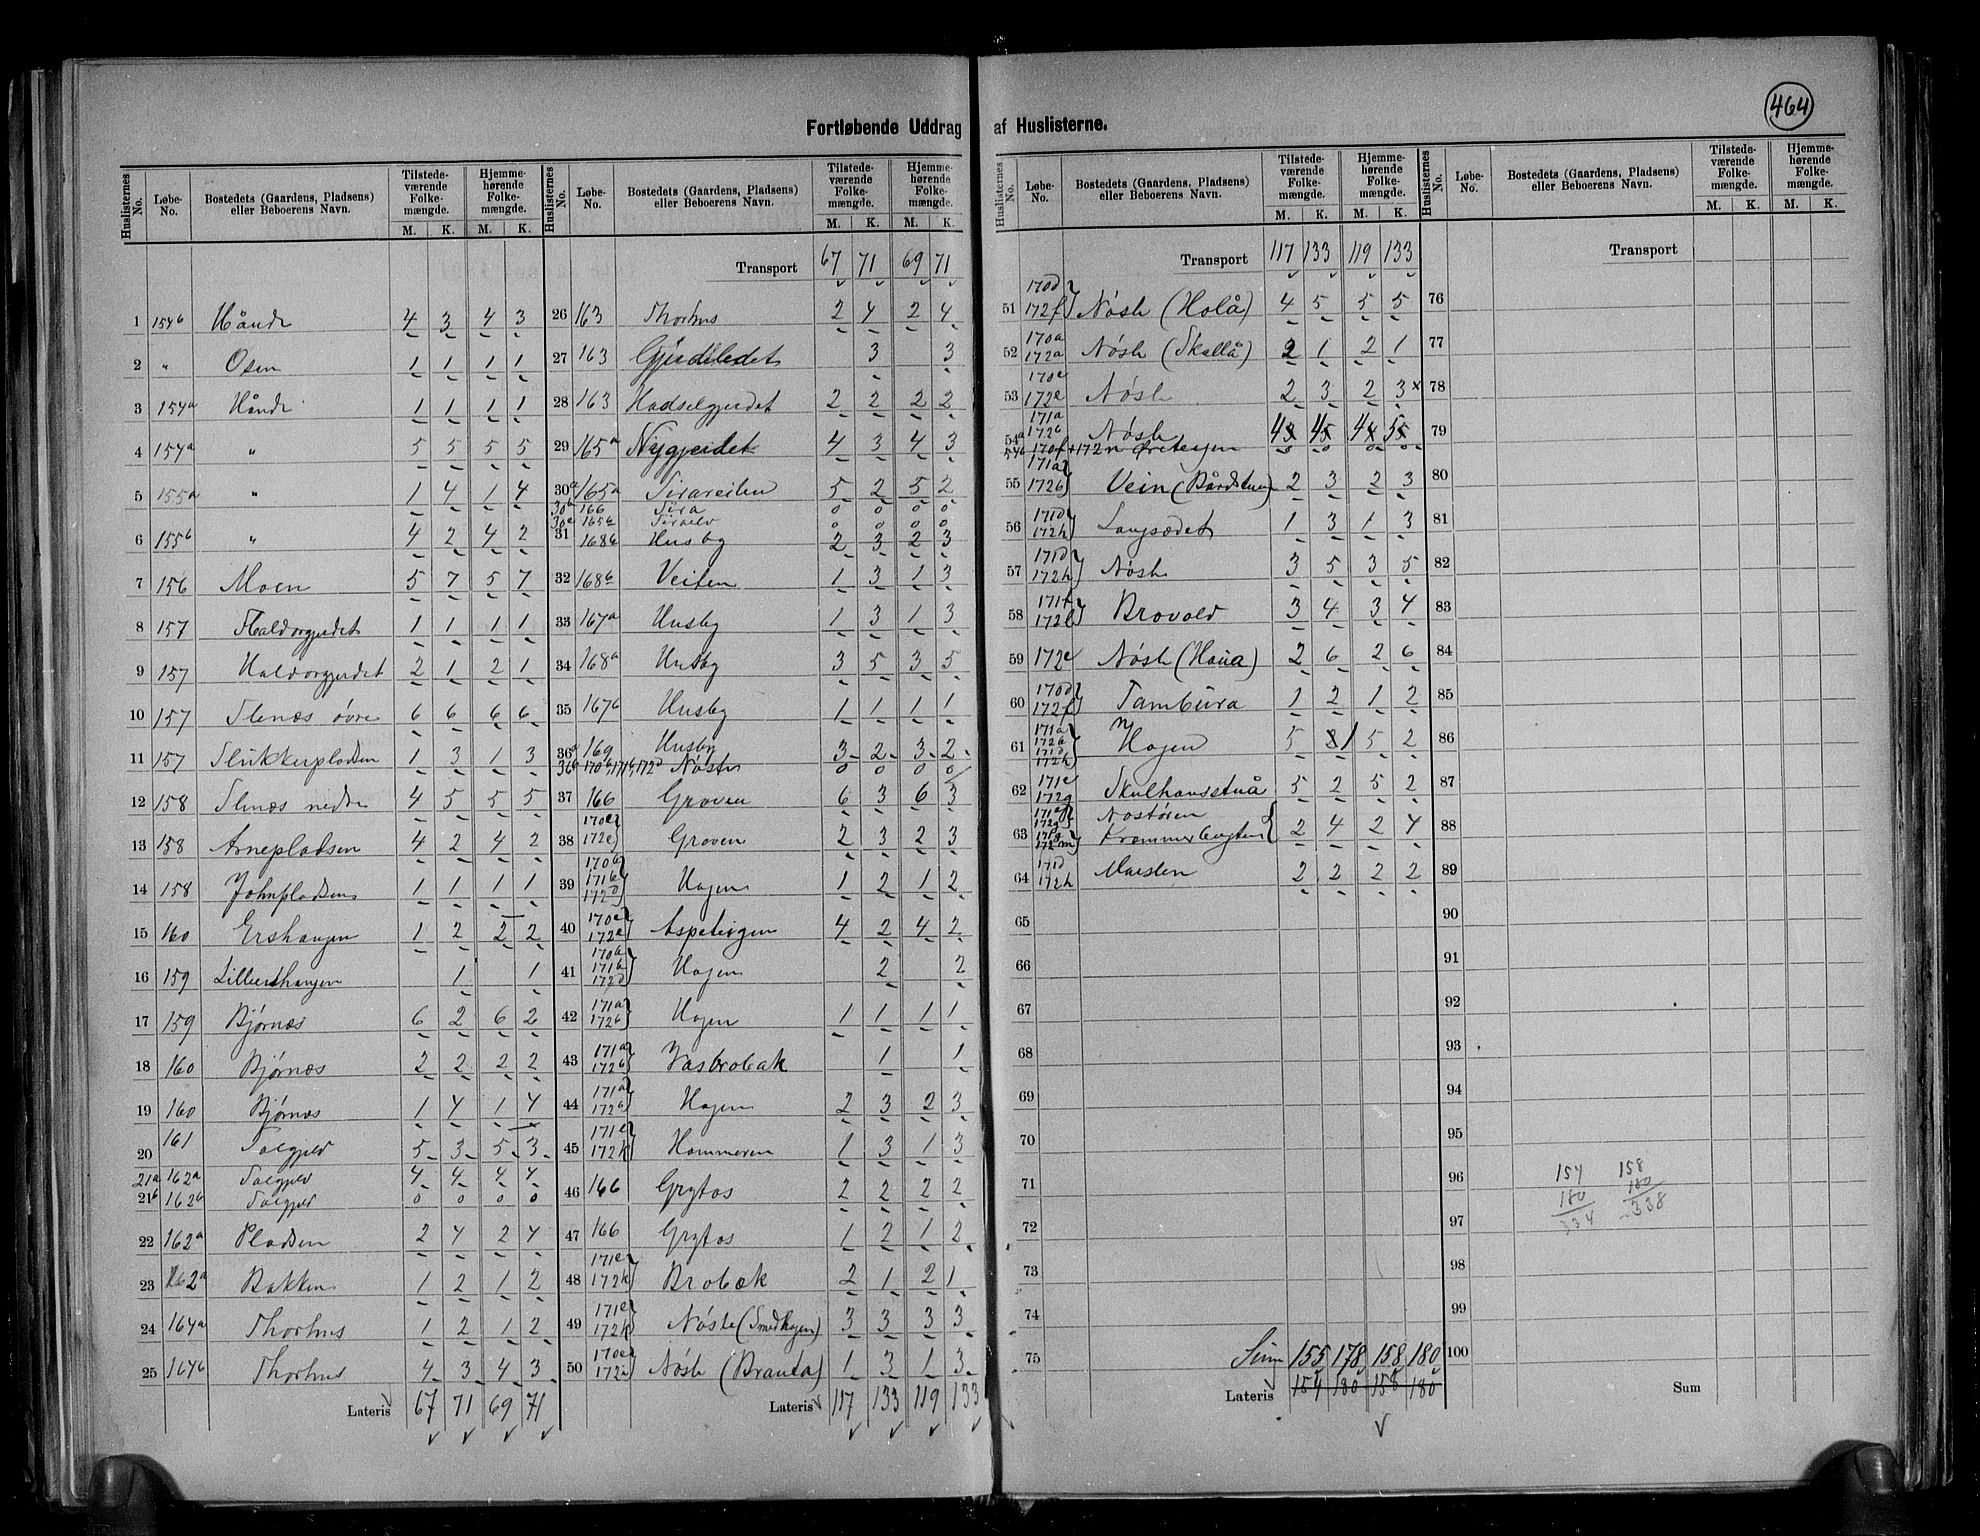 464
Fortløbende Uddrag af Huslisterne.
Huslisternes No. Løbe-No. Bostedets (Gaardens, Pladsens) eller Beboerens Navn. Tilstedeværende Folkemængde. M. K. Hjemmehørende Folkemængde. M. K.
1 154b Hånde 4 3 4 3
2 " Osen 1 1 1 1
3 154a Hånde 1 1 1 1
4 154a " 5 5 5 5
5 155a " 1 4 1 4
6 155b " 4 2 4 2
7 156 Moen 5 7 5 7
8 157 Haldorgjerdet 1 1 1 1
9 157 Haldorgjerdet 2 1 2 1
10 157 Slenæs øvre 6 6 6 6
11 157 Slukkerpladsen 1 3 1 3
12 158 Slenæs nedre 4 5 5 5
13 158 Arnepladsen 4 2 4 2
14 158 Johnpladsen 1 1 1 1
15 160 Ershaugen 1 2 2 2
16 159 Lilleershaugen 1 1
17 159 Bjørnæs 6 2 6 2
18 160 Bjørnæs 2 2 2 2
19 160 Bjørnæs 1 4 1 4
20 161 5 3 5 3
21a 162a 4 4 4 4
21b 162b 0 0 0 0
22 162a Pladsen 2 4 2 4
23 162a Bakken 1 2 1 2
24 164a Thorhus 1 2 1 2
25 164b Thorhus 4 3 4 3
Lateris 67 71 69 71
Huslisternes No. Løbe-No. Bostedets (Gaardens, Pladsens) eller Beboerens Navn. Tilstedeværende Folkemængde. M. K. Hjemmehørende Folkemængde. M. K.
Transport 67 71 69 71
26 163 Thorhus 2 4 2 4
27 163 Gjerdeledet 3 3
28 163 Hadselgjerdet 2 2 2 2
29 165a Nygjerdet 4 3 4 3
30a 165a Siraveiten 5 2 5 2
30b 166 Sira 0 0 0 0
30c 165b 0 0 0 0
31 168b Husby 2 3 2 3
32 168b Veiten 1 3 1 3
33 167a Husby 1 3 1 3
34 168a Husby 3 5 3 5
35 167b Husby 1 1 1 1
36a 169 Husby 3 2 3 2
36b 170b, 171b, 172d Nøste 0 0 0 0
37 166 Groven 6 3 6 3
38 170e 172e Groven 2 3 2 3
39 170b 171b 172d Hagen 1 2 1 2
40 170e 172e Aspeteigen 4 2 4 2
41 170b 171b 172d Hagen 2 2
42 171a 172b Hagen 1 1 1 1
43 171a 172b Vasbrobak 1 1
44 171a 172b Hagen 2 3 2 3
45 171e 172k Hammeren 1 3 1 3
46 166 Grytos 2 2 2 2
47 166 Grytos 1 2 1 2
48 171e 172k Brobæk 2 1 2 1
49 171e 172k Nøste (Smedhagen) 3 3 3 3
50 170e 172i Nøste (Brauta) 1 3 1 3
Lateris 117 133 119 133
Huslisternes No. Løbe-No. Bostedets (Gaardens, Pladsens) eller Beboerens Navn. Tilstedeværende Folkemængde. M. K. Hjemmehørende Folkemængde. M. K.
Transport 117 133 119 133
51 170d 172f Nøste (Holå) 4 5 5 5
52 170a 172a Nøste (Skallå) 2 1 2 1
53 170e 172e Nøste 2 3 2 3 x
54a 171a 172b Nøste 4 4 4 5
54b 170f + 172n 0 0 0 0
55 171a 172b Vein (Bårdstuen) 2 3 2 3
56 171d 172h Langsædet 1 3 1 3
57 171d 172h Nøste 3 5 3 5
58 171f 172l Brovold 3 4 3 4
59 172c Nøste (Haua) 2 6 2 6
60 170d 172f Tambura 1 2 1 2
61 171a 172b 171d 172h Hagen 5 1 5 2
62 171e 172g Skulhausstuå 5 2 5 2
63 171f 172g 171g 172m Nastøren 2 4 2 4
64 171d 172h Marsten 2 2 2 2
65
66
67
68
69
70
71
72
73
74
75
Sum 155 178 158 180
Lateris 154 180 158 180
Huslisternes No. Løbe-No. Bostedets (Gaardens, Pladsens) eller Beboerens Navn. Tilstedeværende Folkemængde. M. K. Hjemmehørende Folkemængde. M. K.
Transport
76
77
78
79
80
81
82
83
84
85
86
87
88
89
90
91
92
93
94
95
96
97
98
99
100
154 158
180 180
334 338
Sum